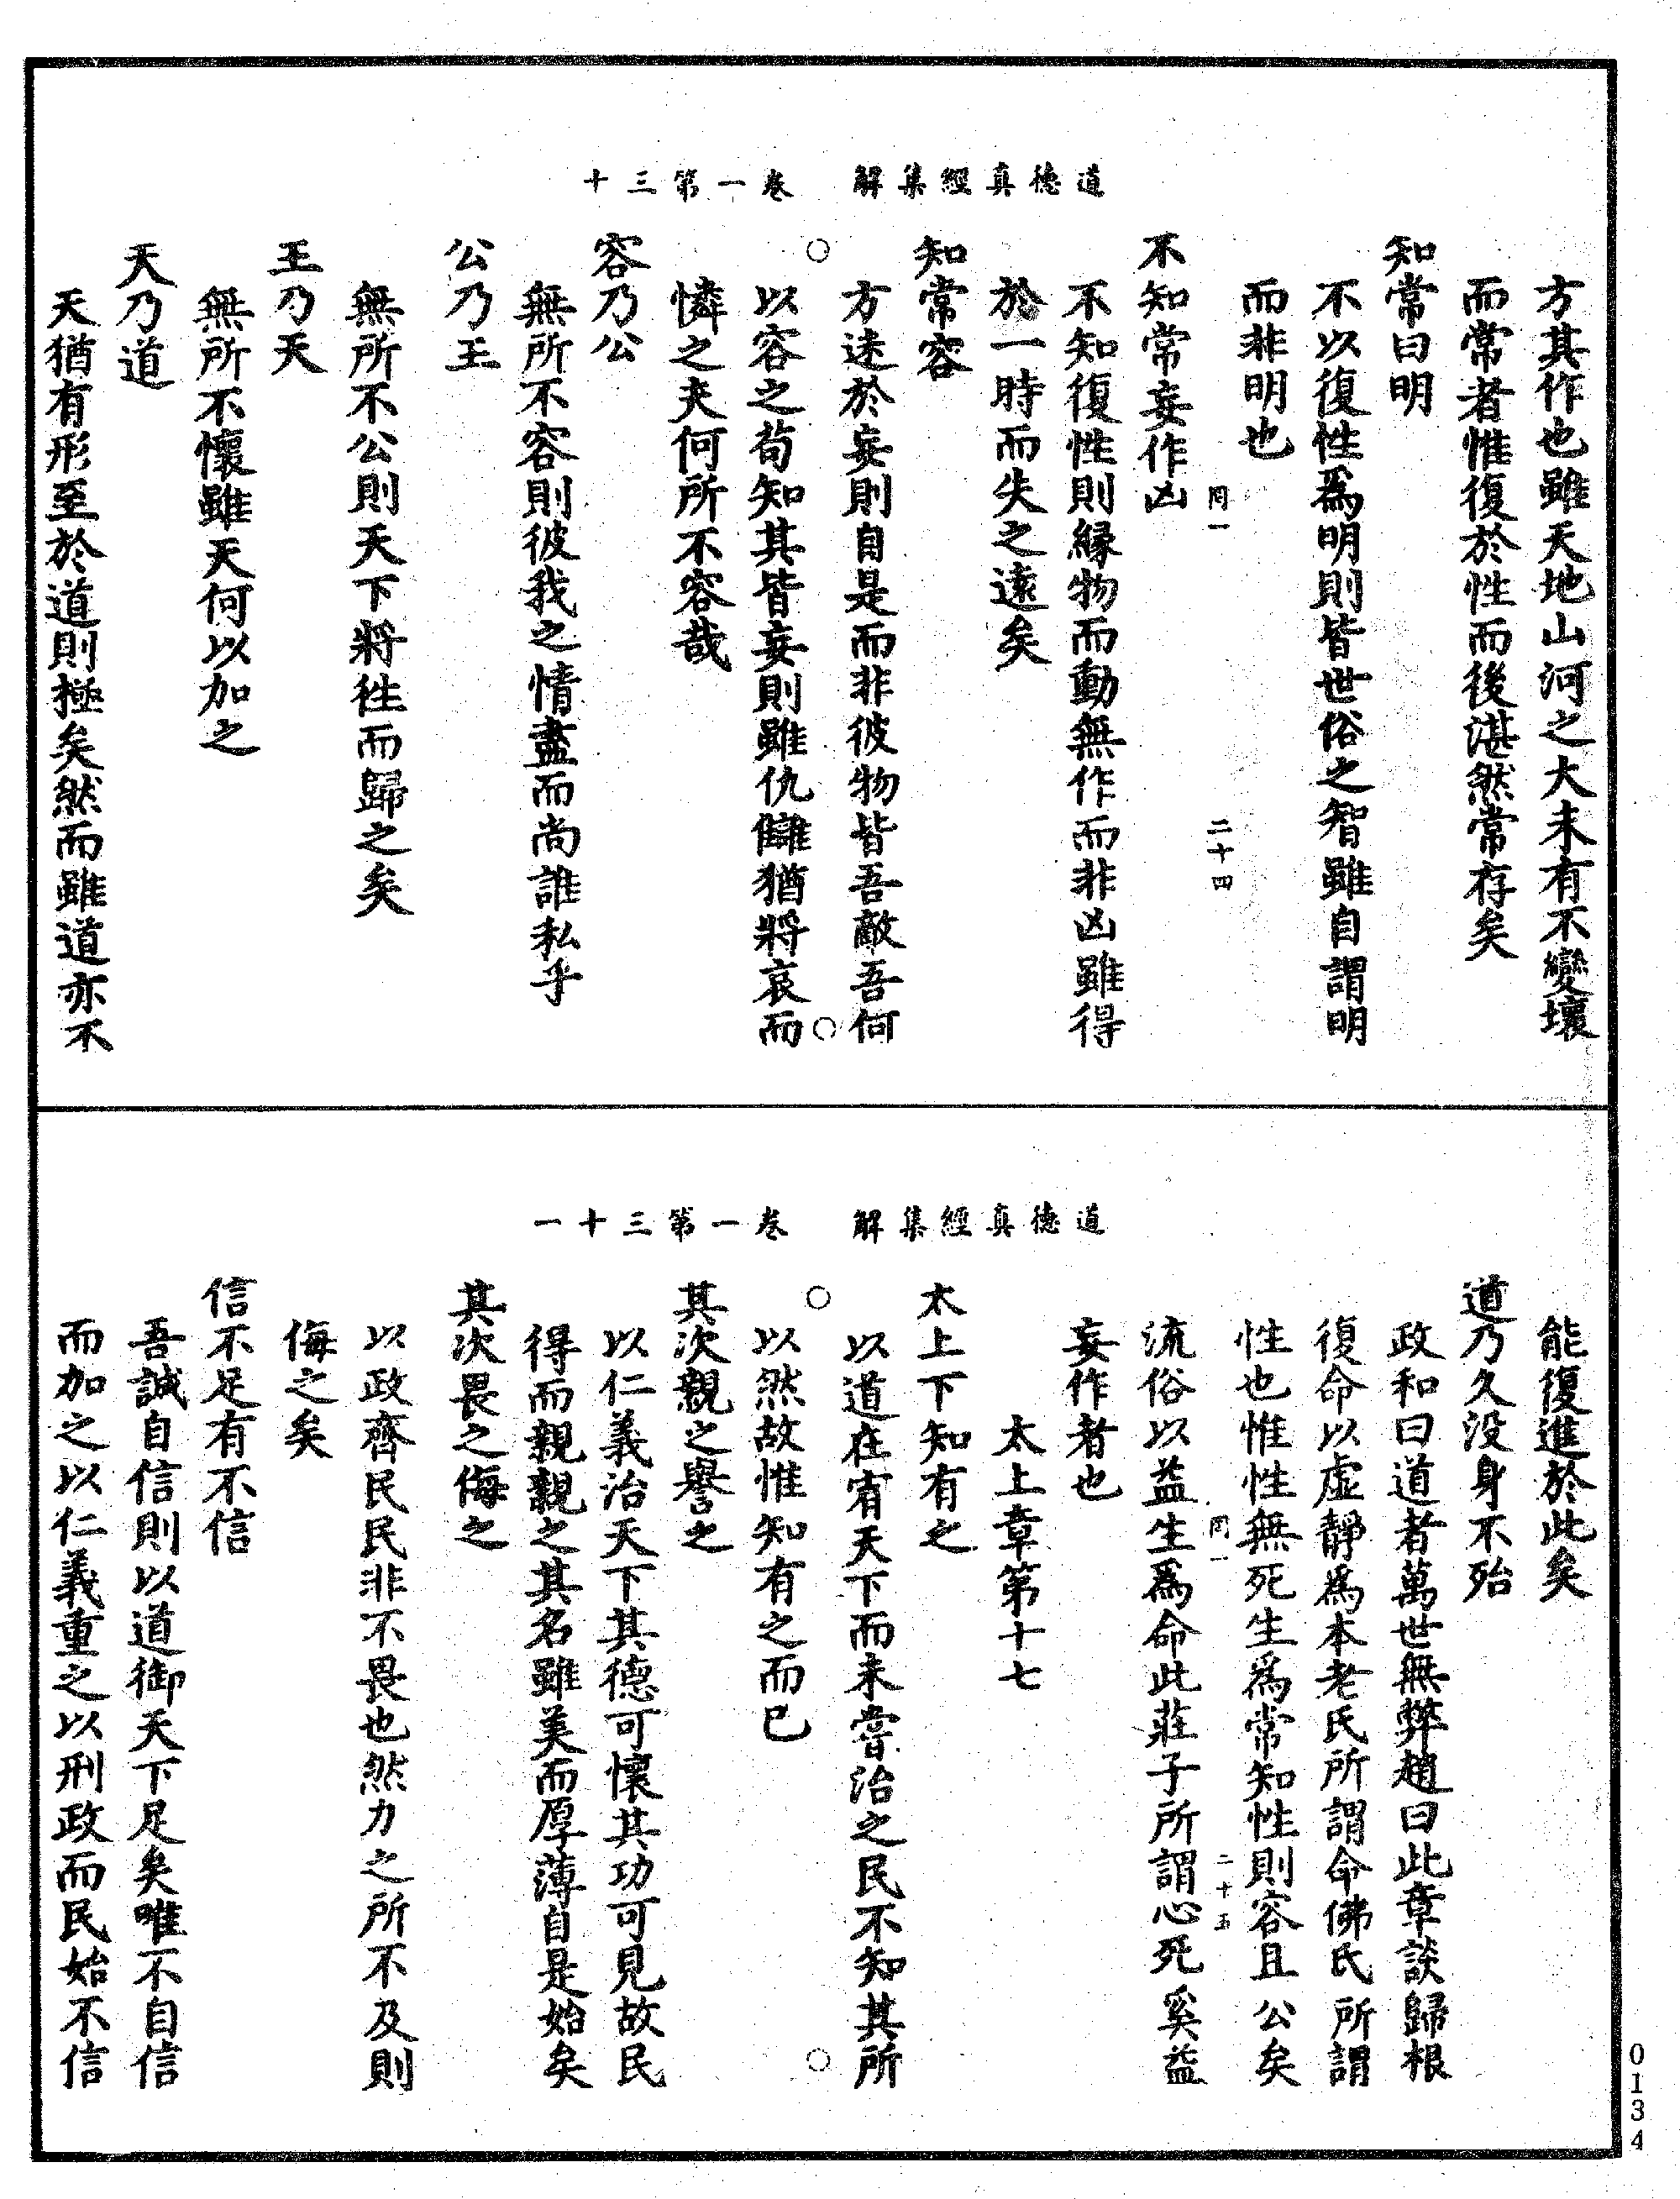 道德真經集解　卷一第三十
方其作也雖天地山河之大未有不變壞
而常者惟復於性而後湛然常存矣
知常曰明
不以復性爲明則皆世俗之智雖自謂明
而非明也
罔一　二十四
不知常妄作凶
不知復性則縁物而動無作而非凶雖得
於一時而失之遠矣
知常容
方迷於妄則自是而非彼物皆吾敵吾何
以容之苟知其皆妄則雖仇讎猶將哀而
憐之夫何所不容哉
容乃公
無所不容則彼我之情盡而尚誰私乎
公乃王
無所不公則天下將徃而歸之矣
王乃天
無所不懷雖天何以加之
天乃道
天猶有形至於道則極矣然而雖道亦不
道德真經集解　卷一第三十一
能復進於此矣
道乃久没身不殆
政和曰道者萬世無弊趙曰此章談歸根
復命以虛靜爲本老氏所謂命佛氏所謂
性也惟性無死生爲常知性則容且公矣
罔一　二十五
流俗以益生爲命此莊子所謂心死奚益
妄作者也
太上章第十七
太上下知有之
以道在宥天下而未嘗治之民不知其所
以然故惟知有之而已
其次親之譽之
以仁義治天下其德可懷其功可見故民
得而親親之其名雖美而厚薄自是始矣
其次畏之侮之
以政齊民民非不畏也然力之所不及則
侮之矣
信不足有不信
吾誠自信則以道御天下足矣唯不自信
而加之以仁義重之以刑政而民始不信
0134